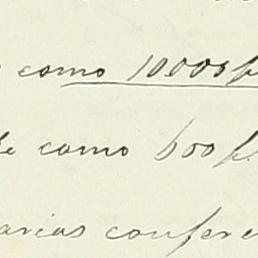 como 10000 p
como 600 p.
varias confere